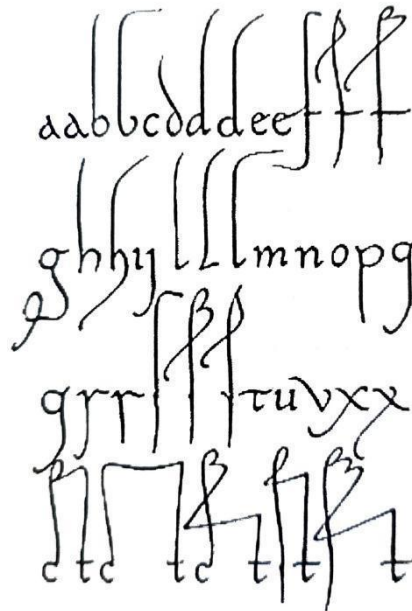 aabbcdddeefff
ghhijlllmnopq
qrrſſſtuvxx
ctctctſtſt